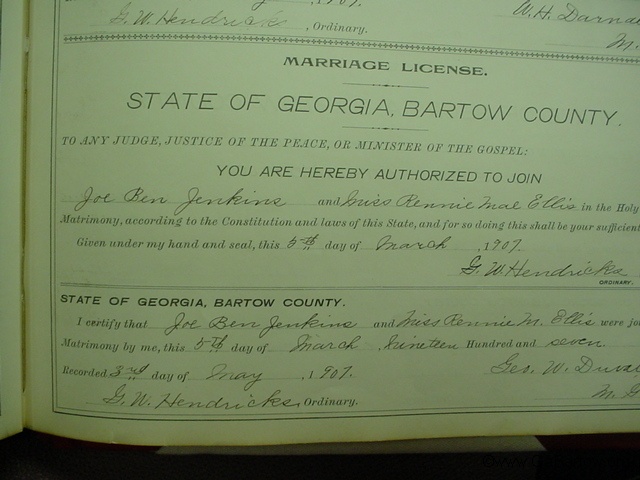 , 1907.
G. W. Hendricks, Ordinary.
W. H. Darna
M.
MARRIAGE LICENSE.
STATE OF GEORGIA, BARTOW COUNTY.
TO ANY JUDGE, JUSTICE OF THE PEACE, OR MINISTER OF THE GOSPEL:
YOU ARE HEREBY AUTHORIZED TO JOIN
Joe Ben Jenkins and Miss Rennie Mae Ellis in the Holy
Matrimony, according to the Constitution and laws of this State, and for so doing this shall be your sufficient
Given under my hand and seal, this 5th day of March, 1907.
G. W. Hendricks
ORDINARY.
STATE OF GEORGIA, BARTOW COUNTY.
I certify that Joe Ben Jenkins and Miss Rennie M. Ellis were joi
Matrimony by me, this 5th day of March, Nineteen Hundred and seven.
Recorded 3rd day of May, 1907. Geo. W. Duva
G. W. Hendricks, Ordinary. M. G